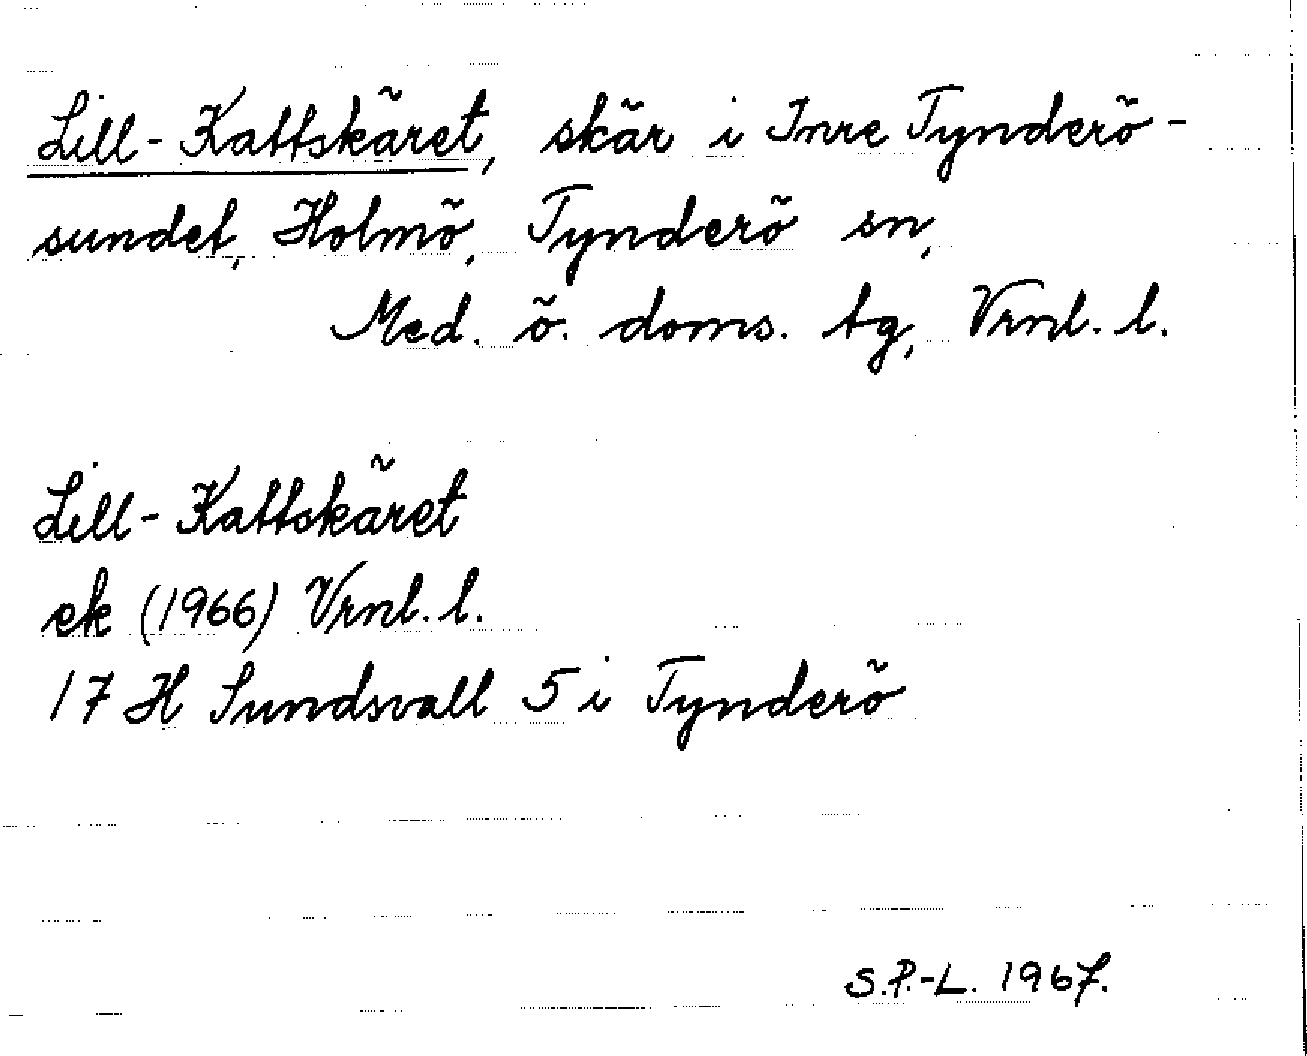 Lill-Kattskäret, skär i Inre Tynderö-
sundet, Holmö, Tynderö sn,
Med. ö. doms. tg, Vrnl. l.
Lill-Kattskäret
ek (1966) Vrnl. l.
17 H Sundsvall 5 i Tynderö
S.P.-L. 1967.